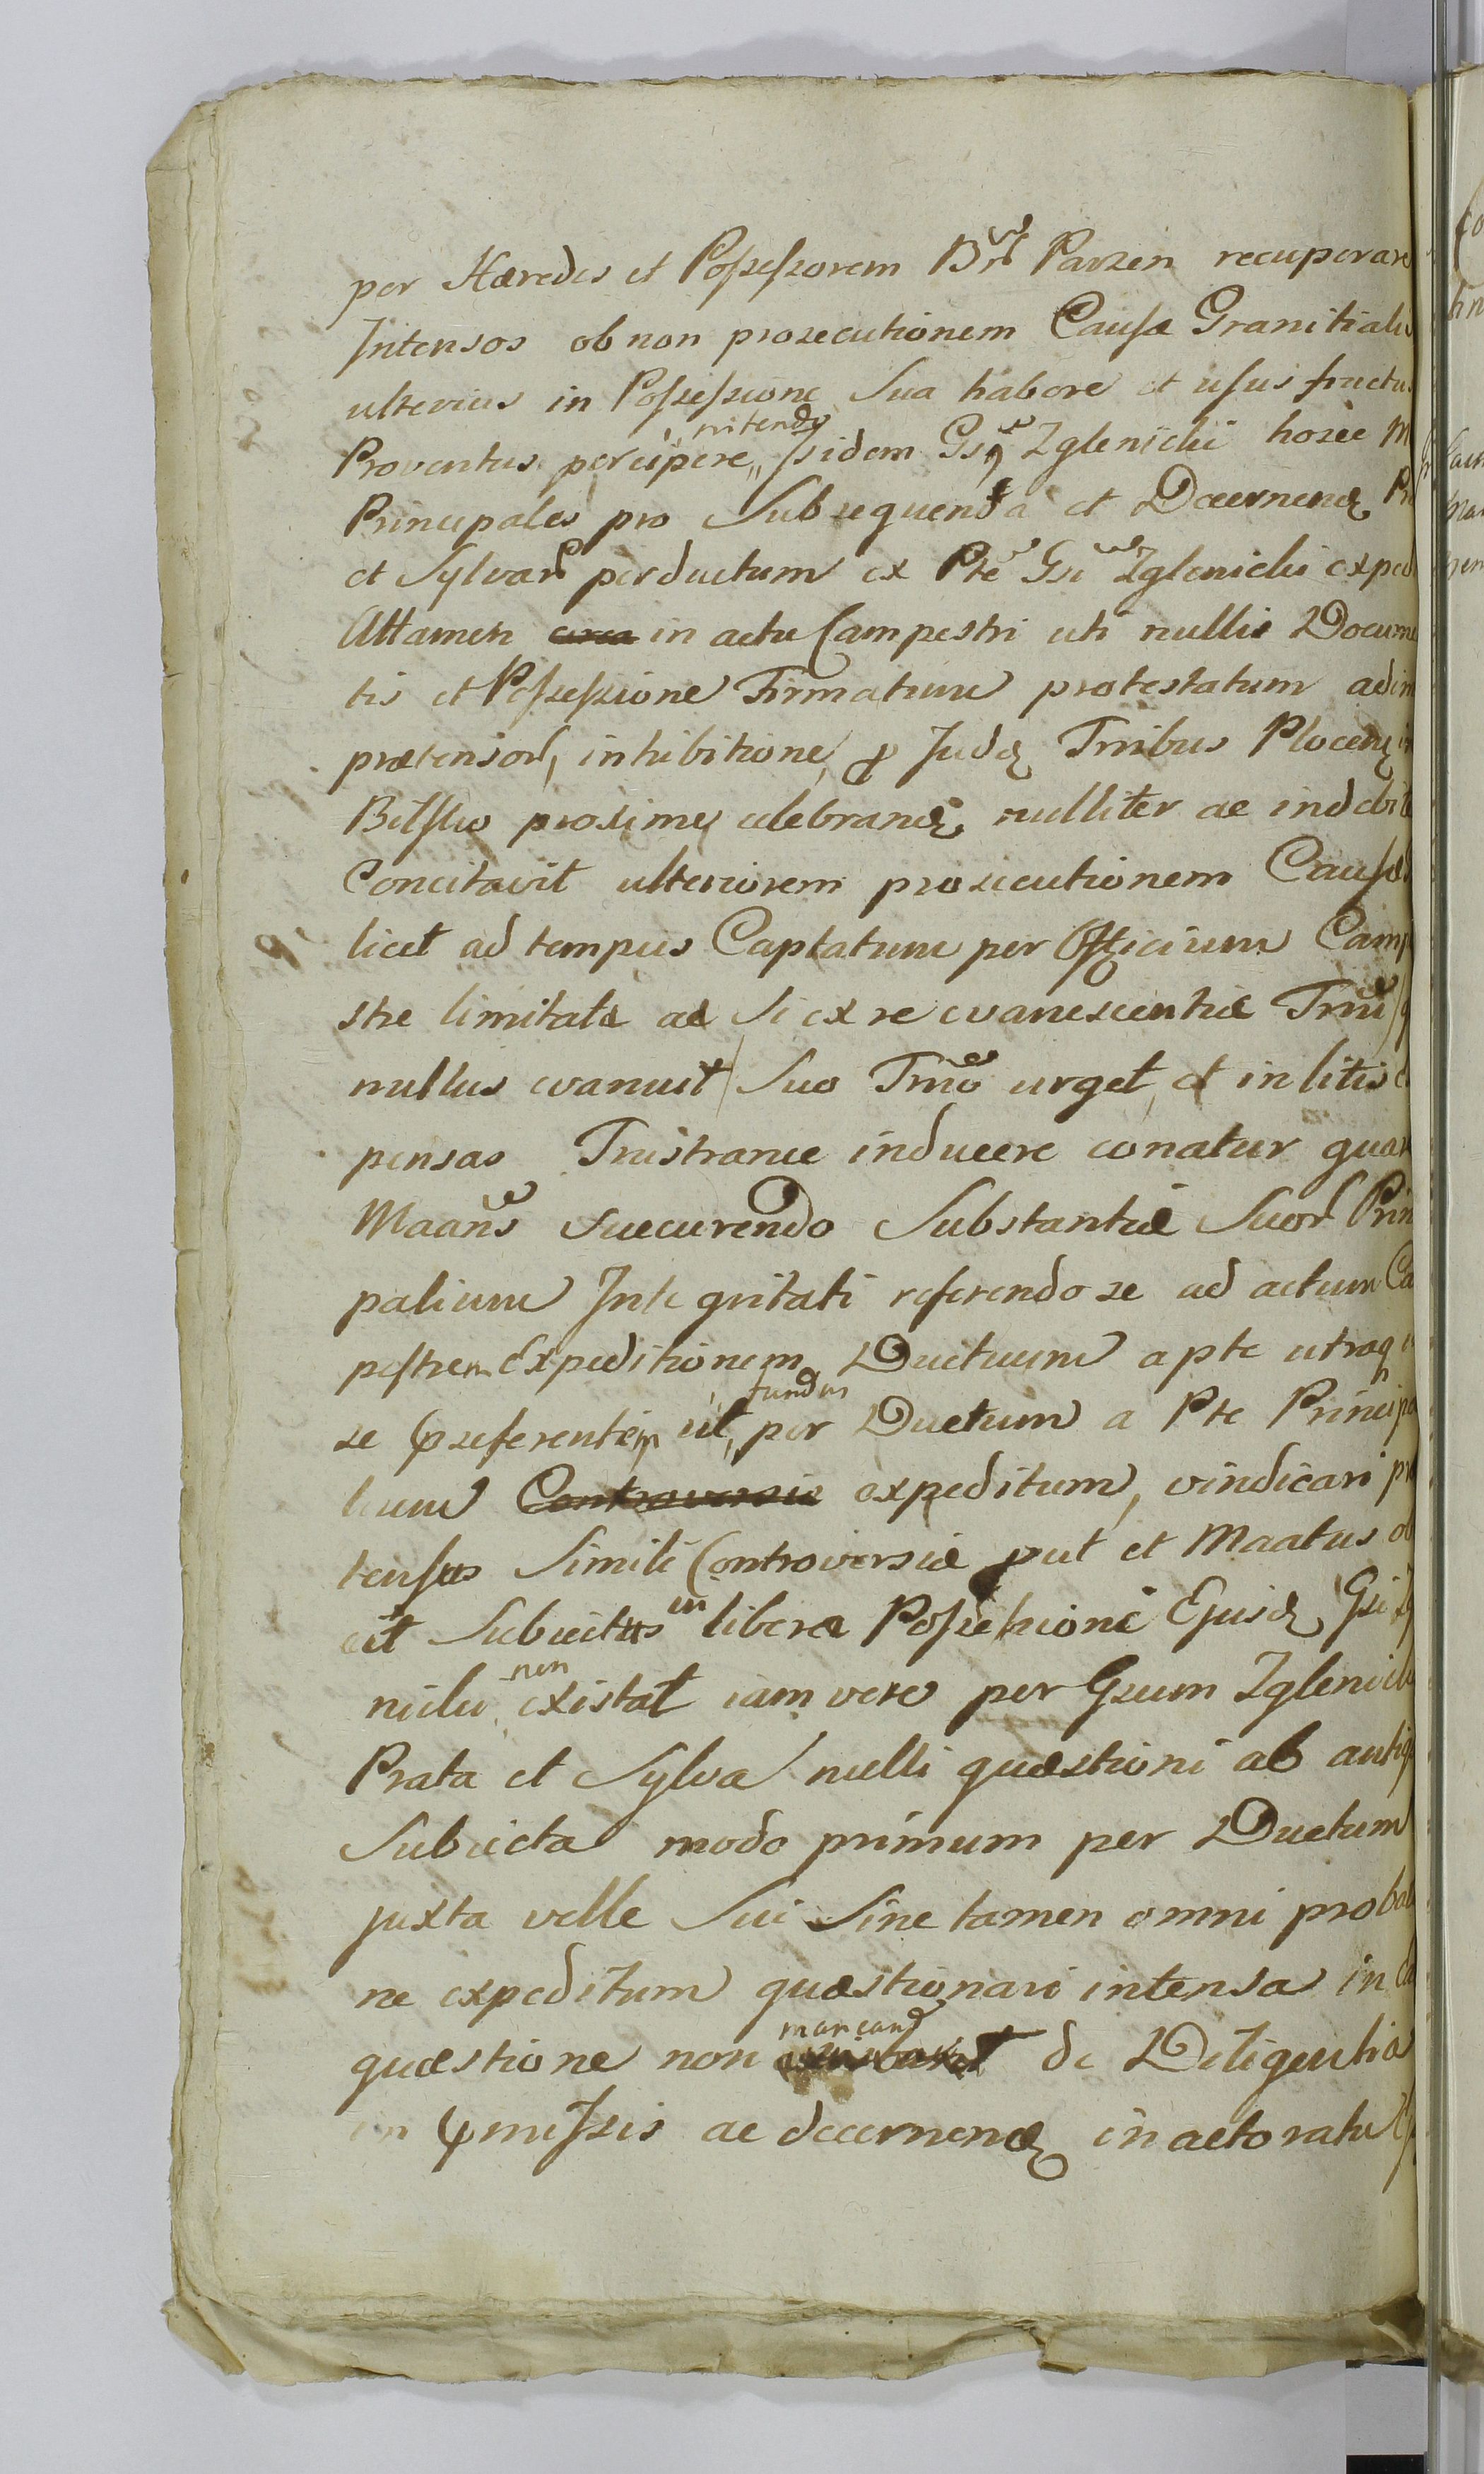 per Hæredes et Possessorem Bnr Parzen recuperare
Intensos ob non prosecutionem Causæ Granitialis
ulterius in Possessione Sua habere et usus fructus
Proventus percipere nitendo, sidem Gsq Zglenicki hosce M
Principales pro Subsequenda et Decernend Pr
et Sylvar perductum ex Pte Gsi Zglenicki exped
Attamen in actu Campestri uti nullis Docume
tis et Possessione Firmatum protestatum adim
prætensor, inhibitione, p Judq Tribus Plocens in
Bilsko proxime celebrand, nulliter ac indebite
Concitavit ulteriorem prosecutionem Causæ
licet ad tempus Captatum per Officium Camp
stre limitatæ ac si ex re evanescentiæ Tmi q
nullus evanuit Suo Tmo urget, et in litis
pensas Frustranee inducere conatur quar
Maans succurendo Substantiæ Suor Prin
palium Integritati referendo se ad actum Ca
pestrem Expeditionem Ductuum a pte utraq
se præferentem ut fundus per Ductum a Pte Princip
lium Controversiæ expeditum, vindicari præ
tensus Simili Controversiæ put et Maatus
est Subiectus in libera Possessioni Ejusd Gsi Zg
nicki non existat iam vero per Gsum Zglenicki
Prata et Sylva nulli quæstioni ab antiq
Subiecta modo primum per Ductum
juxta velle Sui Sine tamen omni probatio
ne expeditum quæstionari intensa in
quæstione non maneand de Diligentia
in præmissis ac decernend in actoratu